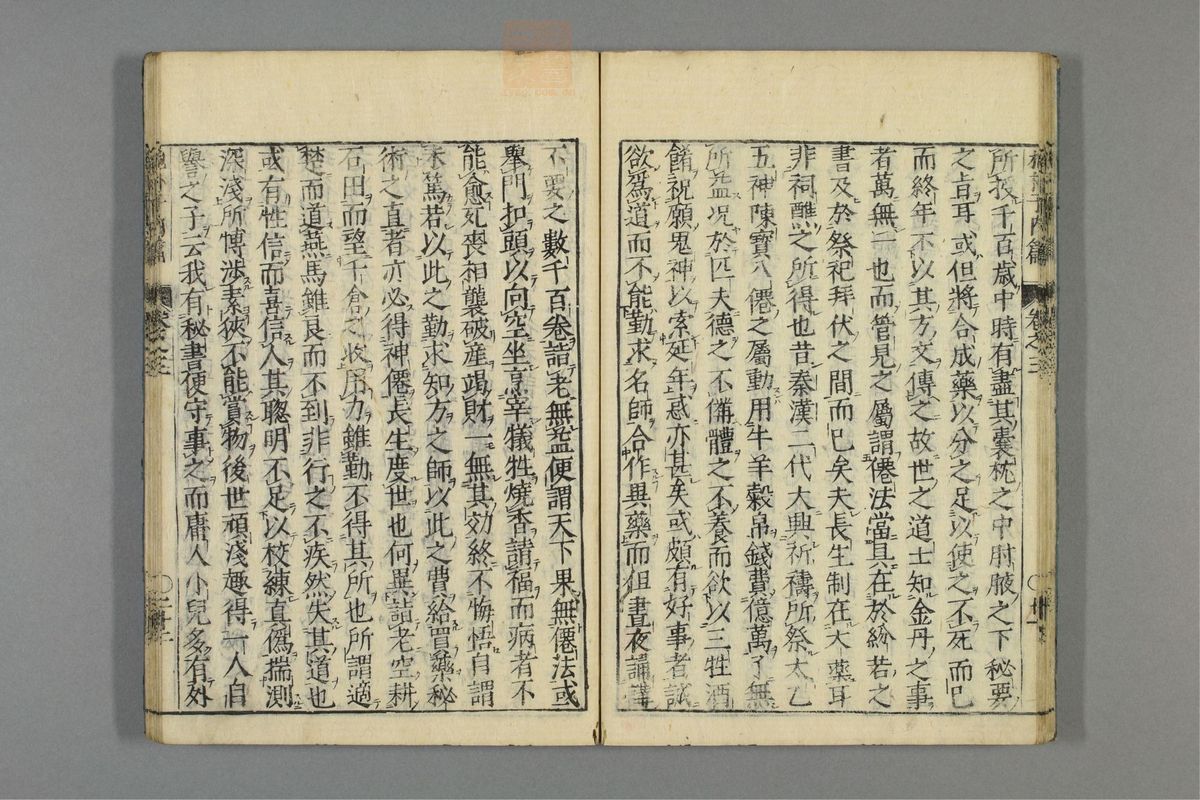 所授千百歲中時有盡其囊枕之中肘腋之下秘要
之旨耳或但將合成藥以分之足以使之不死而已
而終年不以其方文傳之故世之道士知金丹之事
者萬無一也而管見之屬謂僊法當具在於紛若之
書及於祭祀拜伏之間而已矣夫長生制在大藥耳
非祠醮之所得也昔秦漢二代大興祈禱所祭太乙
五神陳寶八僊之屬動用牛羊穀帛錢費億萬了無
所益况於匹夫德之不備體之不養而欲以三牲酒
餚祝願鬼神以索延年惑亦甚矣或頗有好事者誠
欲爲道而不能勤求名師合作異藥而但晝夜誦講
不要之數千百卷詣老無益便謂天下果無僊法或
舉門扣頭以向空坐烹宰犧牲燒香請福而病者不
能愈死喪相襲破産竭財一無其効終不悔悟自謂
未篤若以此之勤求知方之師以此之費給買藥秘
術之直者亦必得神僊長生度世也何異詣老空耕
石田而望千倉之收用力雖勤不得其所也所謂適
楚而道燕馬雖良而不到非行之不疾然失其道也
或有性信而喜信人其聰明不足以校練真僞揣測
深淺所博涉素狹不能賞物後世頑淺趣得一人自
譽之子云我有秘書便守事之而庸人小兒多有外
卷之三
卷之三